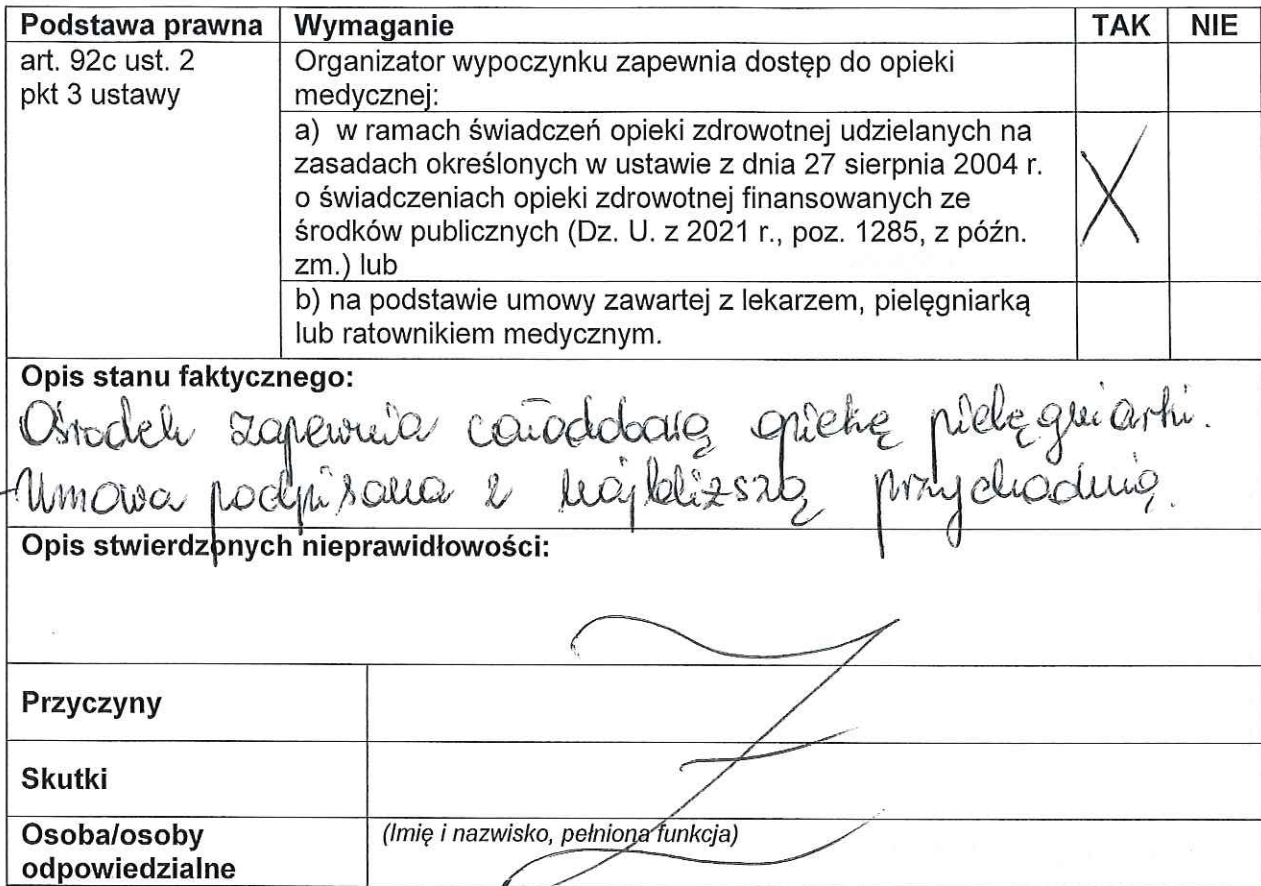 Podstawa prawna Wymaganie TAK NIE
art. 92c ust. 2
pkt 3 ustawy
Organizator wypoczynku zapewnia dostęp do opieki
medycznej:
a) w ramach świadczeń opieki zdrowotnej udzielanych na
zasadach określonych w ustawie z dnia 27 sierpnia 2004 r.
o świadczeniach opieki zdrowotnej finansowanych ze
środków publicznych (Dz. U. z 2021 r., poz. 1285, z późn.
zm.) lub
X
b) na podstawie umowy zawartej z lekarzem, pielęgniarką
lub ratownikiem medycznym.
Opis stanu faktycznego:
Ośrodek zapewnia całodobową opiekę pielęgniarki.
Umowa podpisana z najbliższą przychodnią.
Opis stwierdzonych nieprawidłowości:
Przyczyny
Skutki
Osoba/osoby
odpowiedzialne
(Imię i nazwisko, pełniona funkcja)